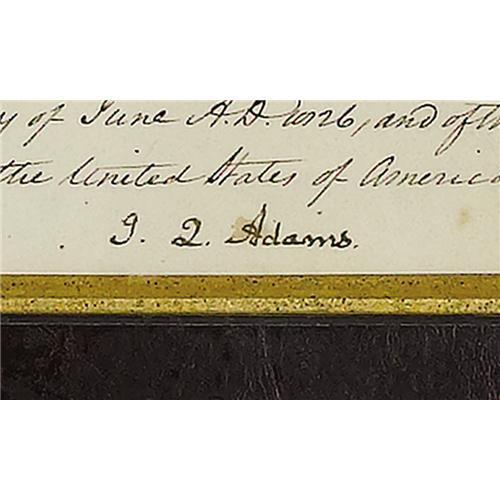 y of June A.D. 1826, and of th
the United States of America
J. Q. Adams.